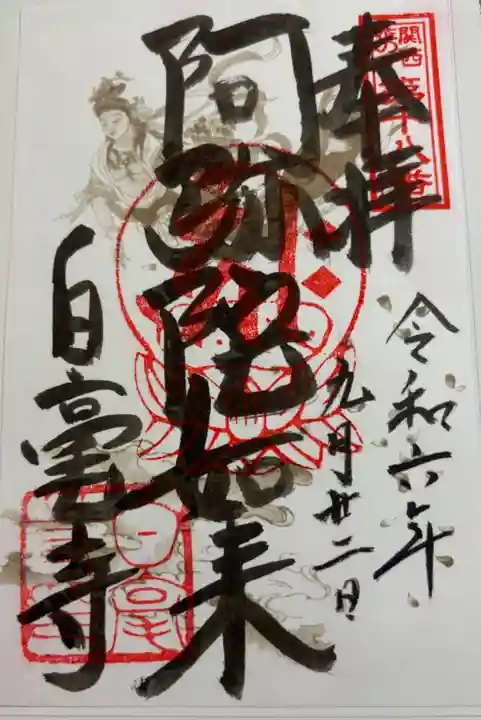 奉拝
関西
第十八番
令和六年
九月廿二日
阿弥陀如来
白毫寺